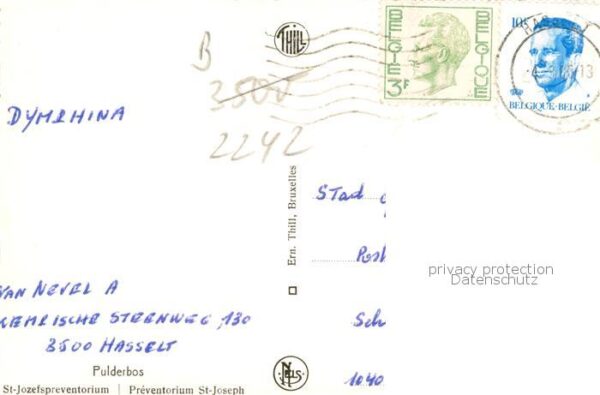 THILL
BELGIE
BELGIQUE
3F
10F
BELGIQUE-BELGIË
HASSELT
13
B
3500
2242
DYMPHINA
Ern. Thill, Bruxelles
Stad
Post
privacy protection
Datenschutz
VAN NEVEL A
STEENWEG, 130
3500 HASSELT
Sch
1040
Pulderbos
St-Jozefspreventorium | Préventorium St-Joseph
NELS